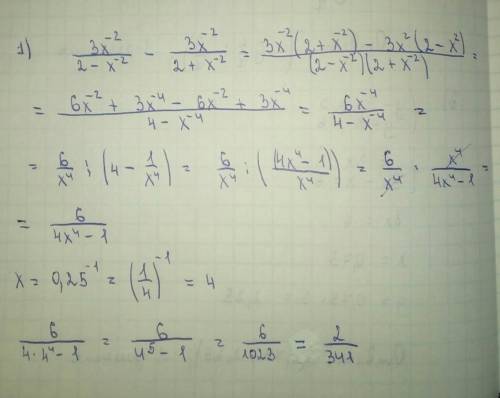 1) \frac{3x^{-2}}{2-x^{-2}} - \frac{3x^{-2}}{2+x^{-2}} = \frac{3x^{-2}(2+x^{-2}) - 3x^{2}(2-x^{2})}{(2-x^{-2})(2+x^{-2})} =
= \frac{6x^{-2} + 3x^{-4} - 6x^{-2} + 3x^{-4}}{4-x^{-4}} = \frac{6x^{-4}}{4-x^{-4}} =
= \frac{6}{x^4} : (4 - \frac{1}{x^4}) = \frac{6}{x^4} : (\frac{(4x^4-1)}{x^4}) = \frac{6}{x^4} · \frac{x^4}{4x^4-1} =
= \frac{6}{4x^4-1}
x = 0,25^{-1} = (\frac{1}{4})^{-1} = 4
\frac{6}{4·4^4-1} = \frac{6}{4^5-1} = \frac{6}{1023} = \frac{2}{341}